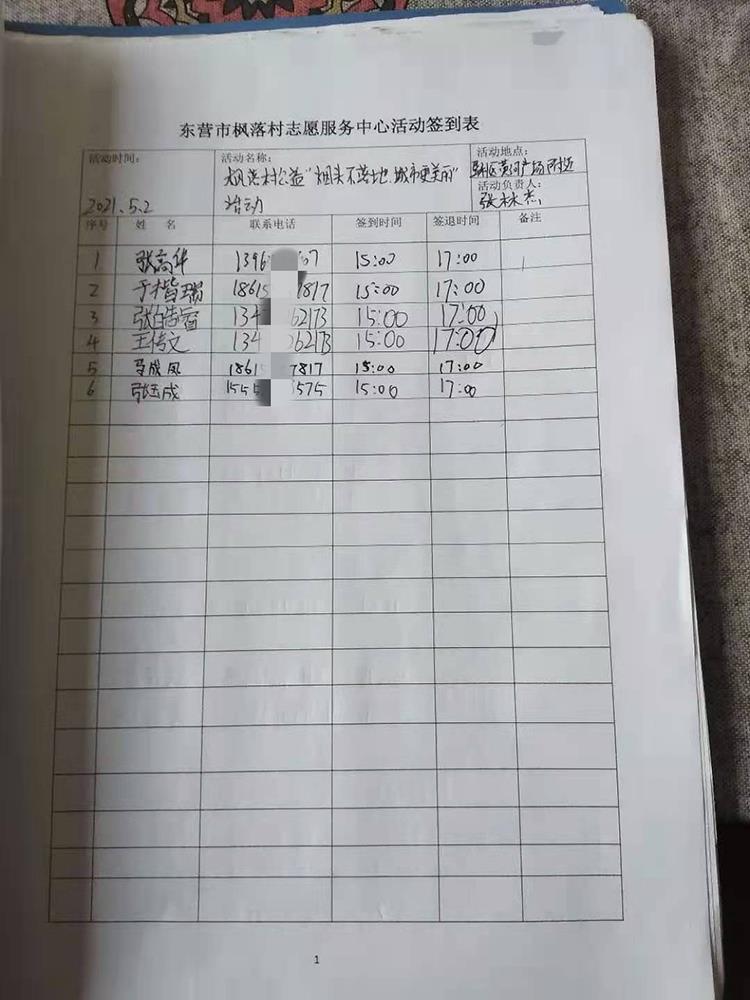 东营市枫落村志愿服务中心活动签到表
活动时间： 2021.5.2
活动名称： 枫落村公益"烟头不落地.城市更美丽"
活动
活动地点：
东城区黄河广场附近
活动负责人：
张林杰
序号 姓 名 联系电话 签到时间 签退时间 备注
1 张高华 1396 07 15:00 17:00
2 于楷瑞 18615 7817 15:00 17:00
3 张皓睿 134 62173 15:00 17:00
4 王传文 134 262173 15:00 17:00
5 马成凤 1861 7817 15:00 17:00
6 张玉成 1555 3575 15:00 17:00
1